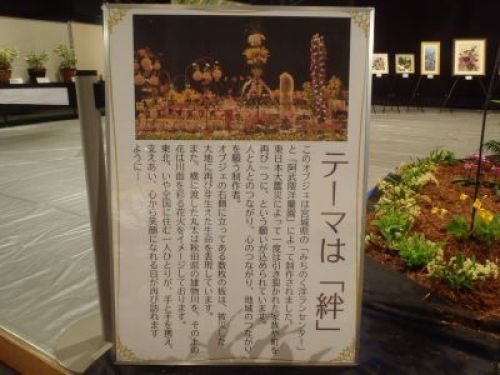 テーマは「絆」
このオブジェは宮城県の「みちのく洋ランセンター」
と「阿武隈洋蘭園」によって制作されました。
東日本大震災によって一度は引き裂かれた家族や町を
再び一つに、という願いが込められています。
人と人とのつながり、心のつながり、地域のつながり
を願う制作者。
オブジェの右側に立ってある数枚の板は、被災した
大地に再び芽生えた生命を表現しています。
また、横に渡した丸太は秋田県の雄物川を、その上の
花は川面を彩る花火をイメージしております。
東北、いや全国に住む一人ひとりが、手と手を携え、
支えあい、心から笑顔になれる日が再び訪れます
ように！